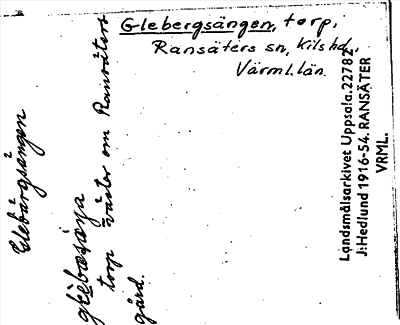 Glebergsängen, torp,
Ransäters sn, Kils hd,
Värml. län.
Glebärgsängen
torp väster om Ransäters
gård.
Landsmålsarkivet Uppsala. 22782
J. Hedlund 1916-54. RANSÄTER
VRML.